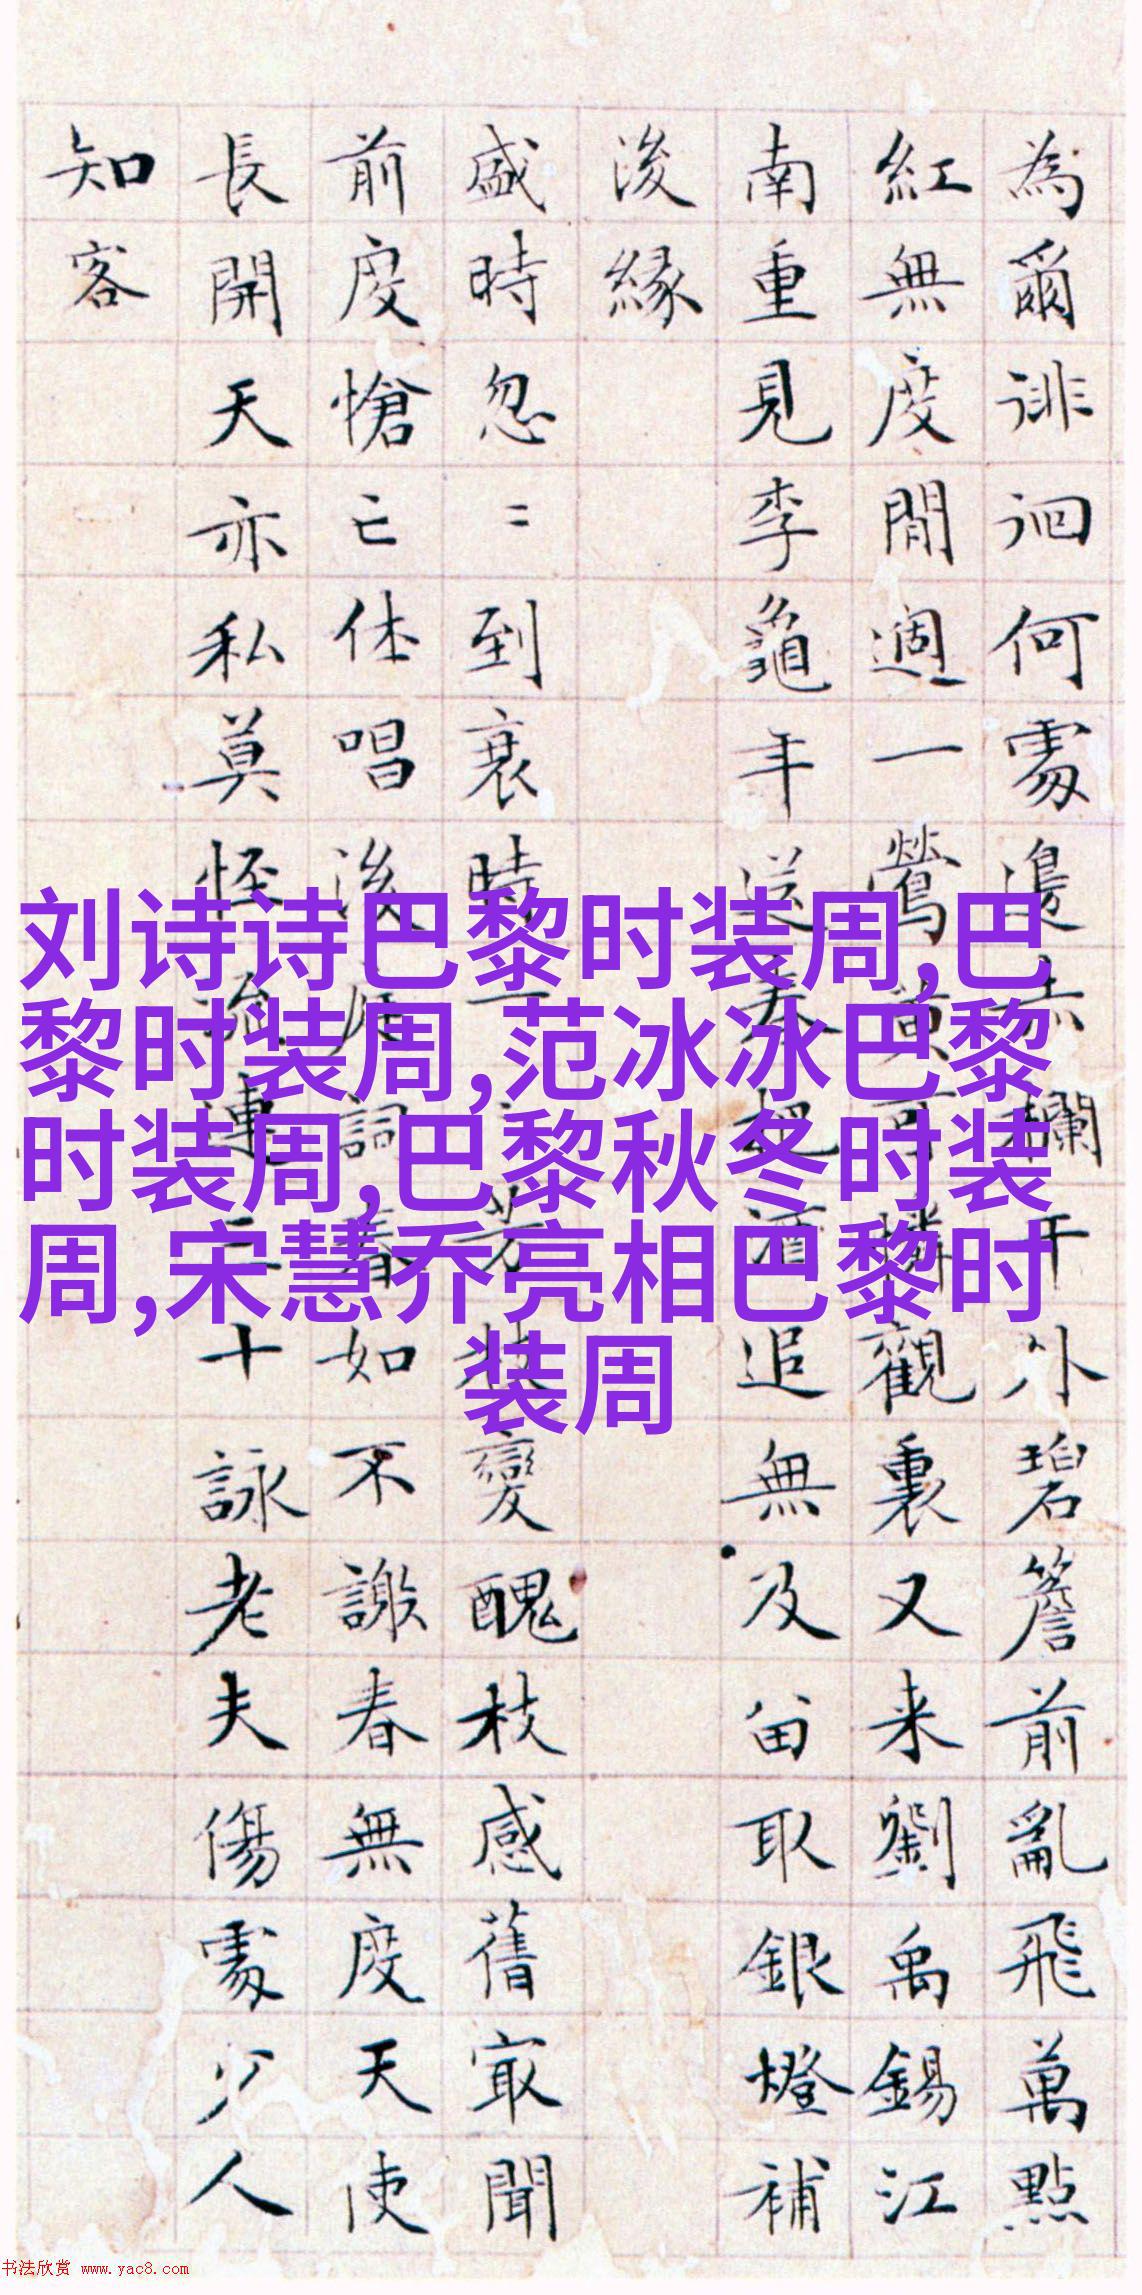 為爾徘徊何處邊赤欄干外碧簷前亂飛萬點
紅無度閒過一鶯黃可憐觀裏又来劉禹錫江
南重見李龜年送春把酒追無及留取銀燈補
後緣
盛時忽〻到衰時一一芳枝變醜枝感舊最聞
前度愴亡休唱後庭詞春如不謝春無度天使
長開天亦私莫怪連二十詠老夫傷處少人
知客
刘诗诗巴黎时装周,巴
黎时装周,范冰冰巴黎
时装周,巴黎秋冬时装
周,宋慧乔亮相巴黎时
装周
书法欣赏 www.yac8.com